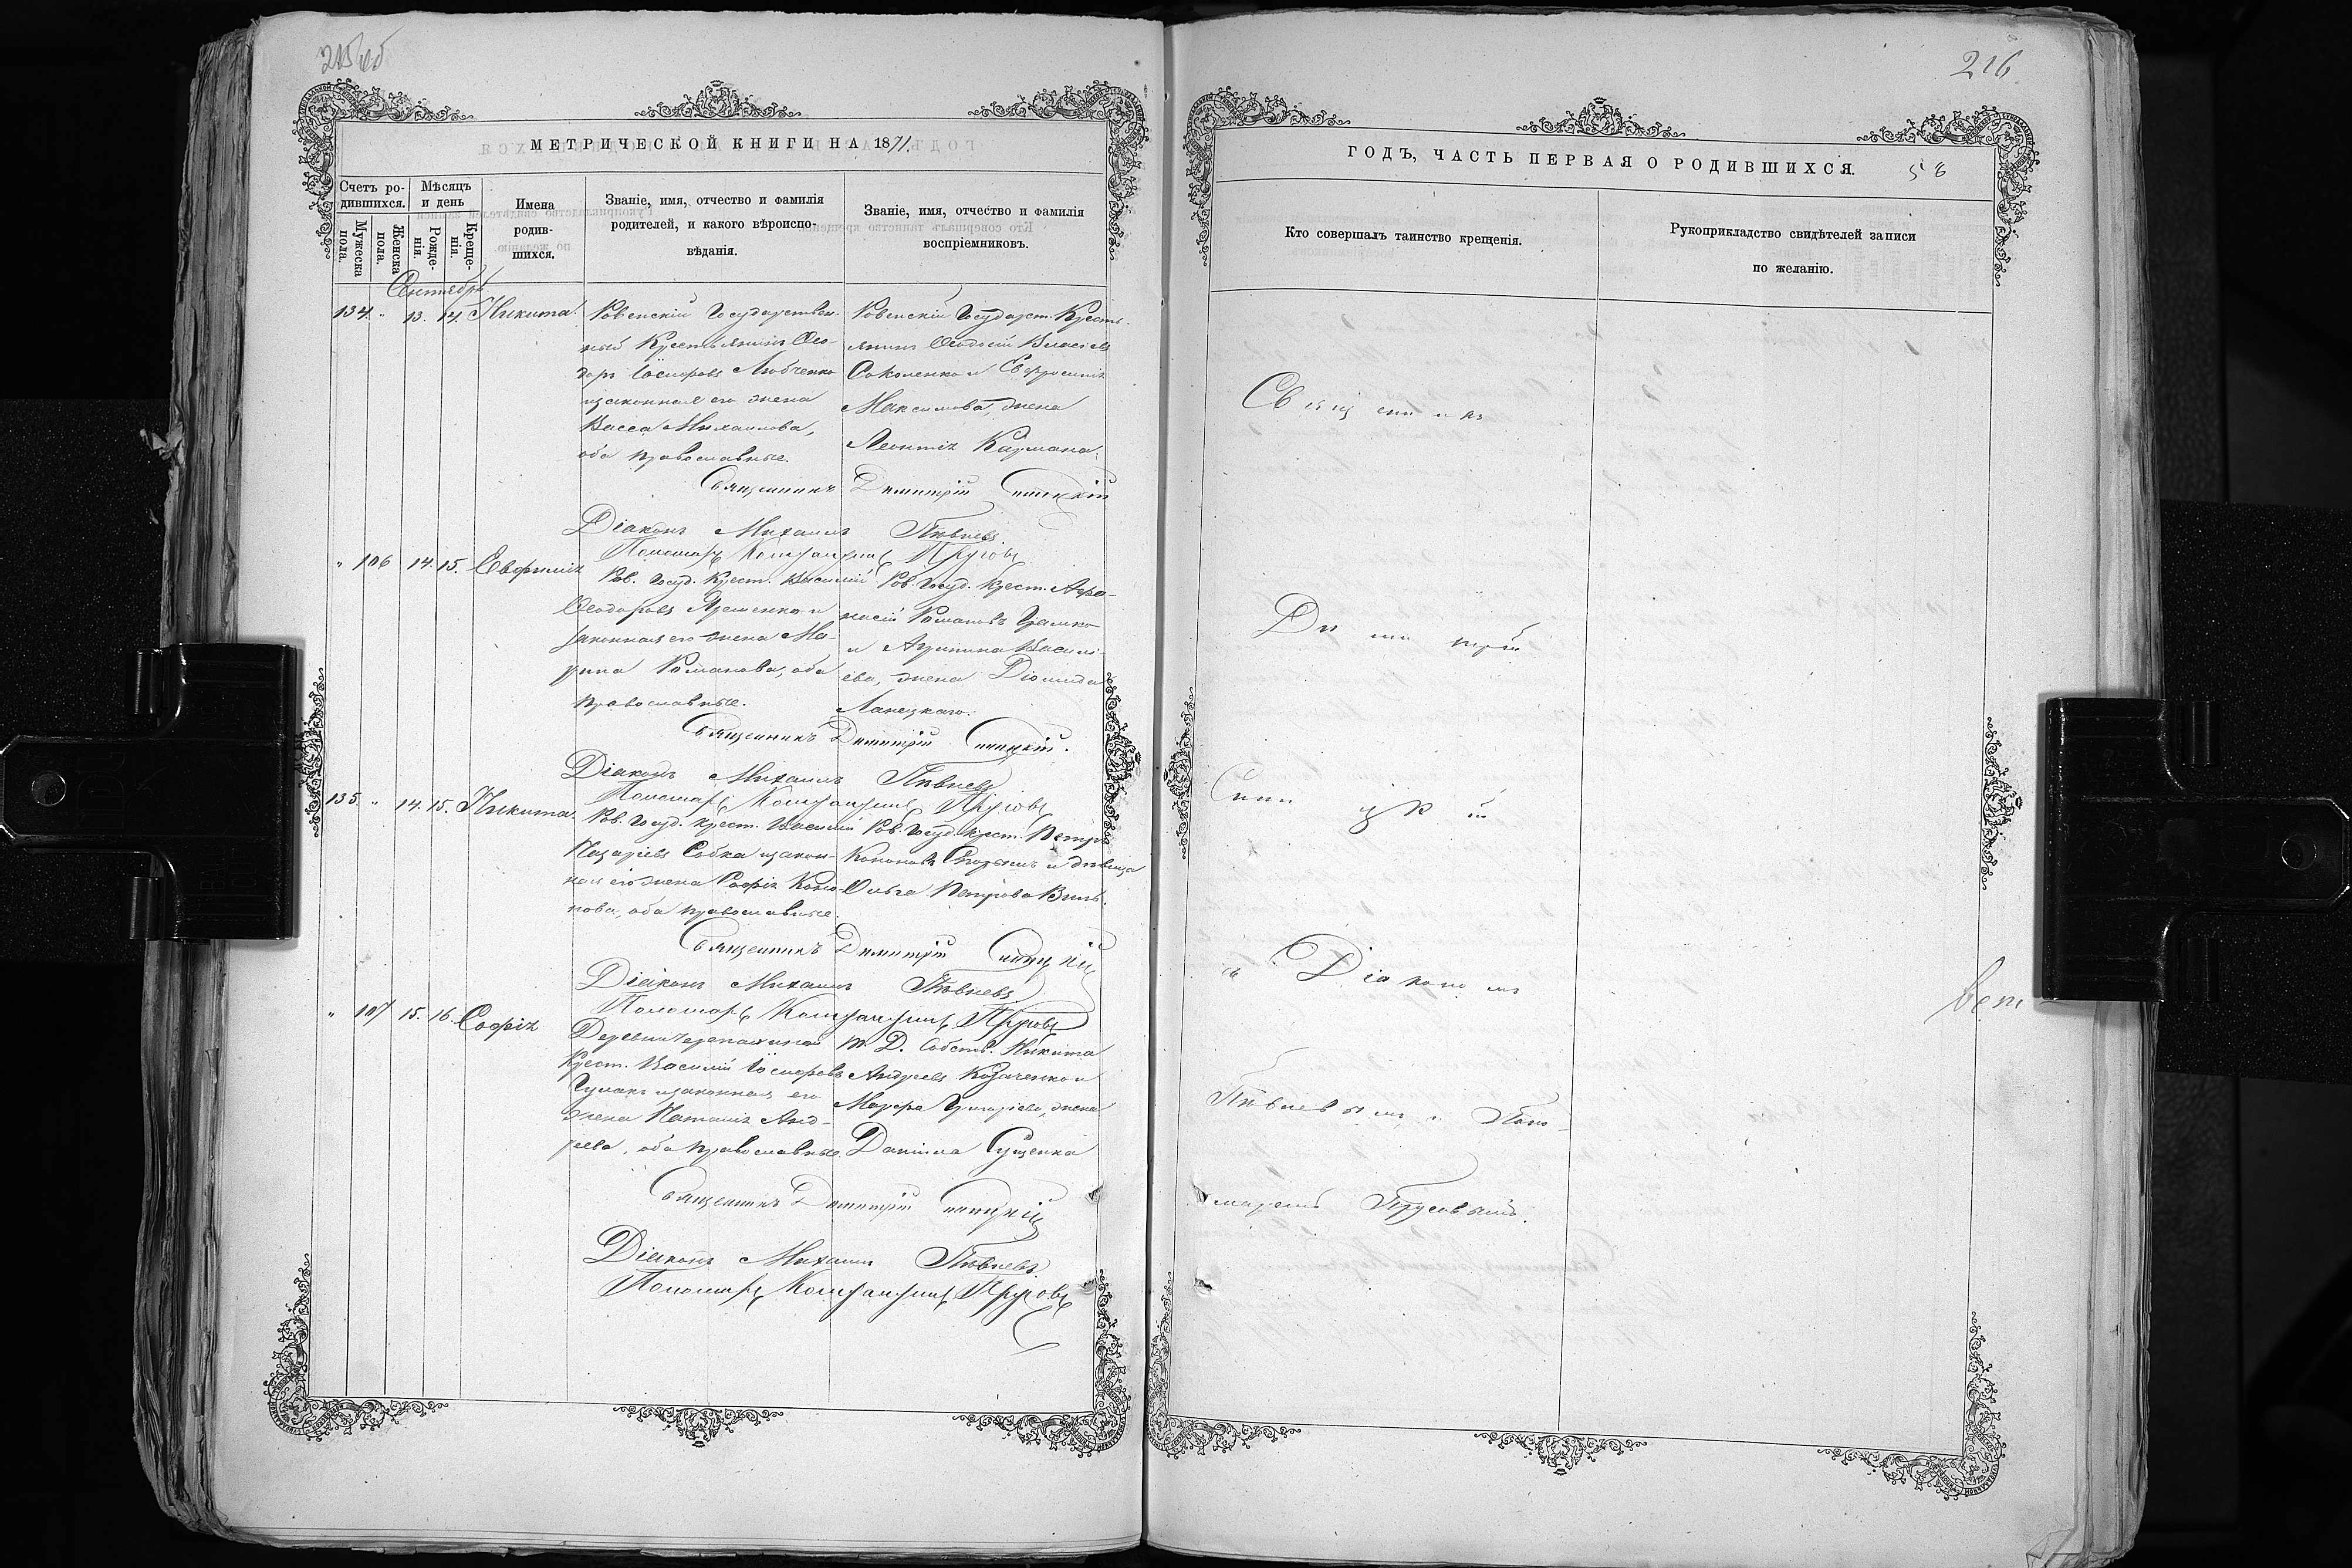 215 об
МЕТРИЧЕСКОЙ КНИГИ НА 1871.
Счетъ ро-
дившихся.
Мужеска пола.
Женска пола.
Мѣсяцъ
и день
Рожде-
нія.
Креще-
нія.
Имена
родив-
шихся.
Званіе, имя, отчество и фамилія
родителей, и какого вѣроиспо-
вѣданія.
Званіе, имя, отчество и фамилія
воспріемниковъ.
Сентябрь
134. " 13. 14. Никита.
Ровенскій Государствен-
ный Крестьянинъ Ѳео-
доръ Іосифовъ Любченко
изаконная его жена
Васса Михаилова,
оба православные.
Ровенскій Государст. Кресть-
янинъ Ѳеодосій Власіевъ
Соколенко и Евфросинія
Максимова, жена
Леонтія Кармана.
Священникъ Димитрій Ситецкій
Діаконъ Михаилъ Пѣвневъ
Пономарь Константинъ Прусовъ
" 106 14. 15. Евфимія
Ров. Госуд. Крест. Василій
Ѳеодоровъ Яременко и
законная его жена Ма-
рина Романова, оба
православные.
Ров. Госуд. Крест. Афа-
насій Романовъ
и Агрипина Васили-
ева, жена Діомида
Ланецкаго.
Священникъ Димитрій Ситецкій.
Діаконъ Михаилъ Пѣвневъ
Пономарь Константинъ Прусовъ
135. " 14. 15. Никита
Ров. Госуд. Крест. Василій
Назаріевъ Собка изакон-
ная его жена Софія Коно-
нова, оба православные.
Ров. Госуд. Крест. Петръ
Кононовъ и дѣвица
Ольга Петрова
Священникъ Димитрій Ситецкій
Діаконъ Михаилъ Пѣвневъ
Пономарь Константинъ Прусовъ
" 107 15. 16. Софія
Деревни Черепахиной
Крест. Василій Іосифовъ
Чумакъ изаконная его
жена Наталія Анд-
реева, оба православные.
т. Д. Собств. Никита
Андреевъ Козаченко и
Марфа Григоріева, жена
Даніила Сущенка
Священникъ Димитрій Ситецкій
Діаконъ Михаилъ Пѣвневъ
Пономарь Константинъ Прусовъ
216
ГОДЪ, ЧАСТЬ ПЕРВАЯ О РОДИВШИХСЯ. 58
Кто совершалъ таинство крещенія.
Рукоприкладство свидѣтелей записи
по желанію.
Священникъ
Димитрій
Ситецкій
съ Діакономъ
Пѣвневымъ и Поно-
маремъ Прусовымъ.